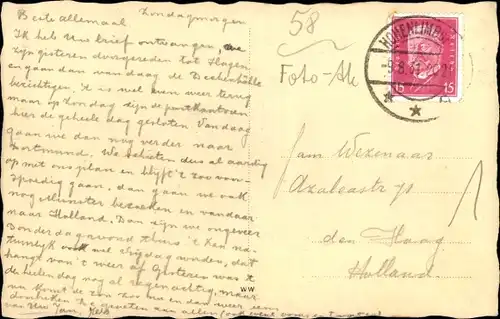 Beste allemaal Zondagmorgen
Ik heb Uw brief ontvangen, we
zijn gisteren doorgereden tot Hagen
en gaan dan vandaag de Dechenhöhle
bezichtigen, 't is wel een weer terug
maar op Zondag zijn de postkantoren
hier de geheele dag gesloten. Vandaag
gaan we dan nog verder naar
Dortmund. We schieten dus al aardig
op met ons plan en blijft 't zoo voor-
spoedig gaan, dan gaan we ook
nog Munster bezoeken en vandaar
naar Holland. Dan zijn we ongeveer
Donderdagavond thuis. 't Kan na-
tuurlijk ook wel Vrijdag worden, dat
hangt van 't weer af. Gisteren was 't
de heelen dag nog al regenachtig, maar
nu komt de zon zoo nu en dan weer eens
van Uw Jan,
58
Foto-Ak
HOHENLIMBURG
15 15
Jam Wezenaar
Azaleastr
den Haag
Holland
WW